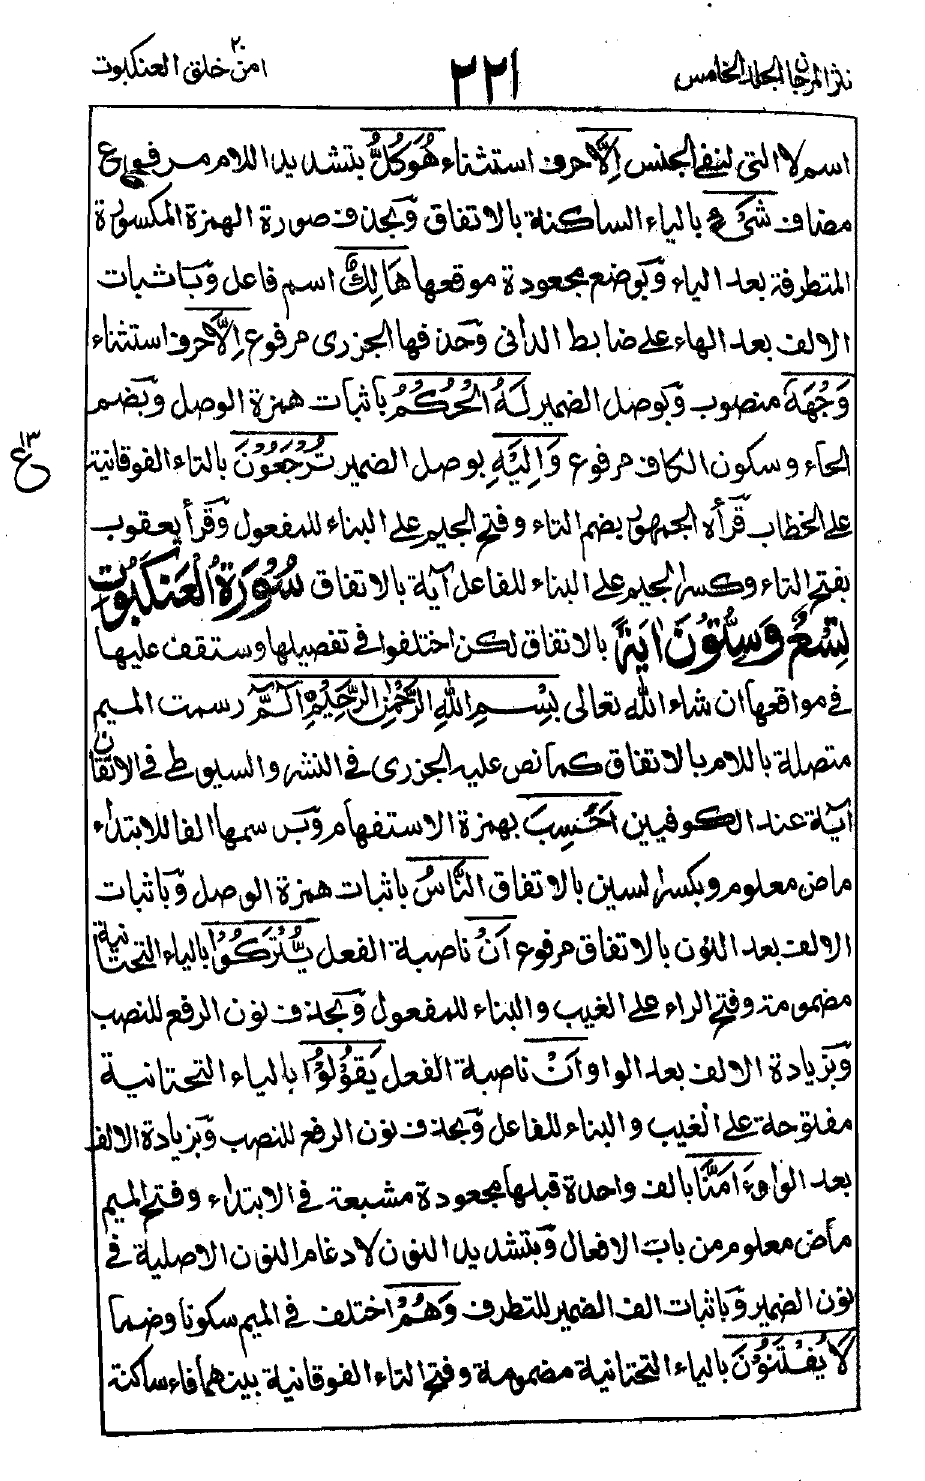 نثر المرجان المجلد الخامس
٢٢١
امن خلق ٢٠ العنكبوت
اسم لا التى لنفى الجنس اِلَّا حرف استثناء هُوَ كُلُّ بتشديد اللام مرفوع
مضاف شَىْءٍ بالياء الساكنة بالاتفاق وَبحذف صورة الهمزة المكسورة
المتطرفة بعد الياء وَبوضع مجعودة موقعها هَالِكٌ اسم فاعل وَباثبات
الالف بعد الهاء على ضابط الدانى وَحذفها الجزرى مرفوع اِلَّا حرف استثناء
وَجْهَهٗ منصوب وَبوصل الضمير لَهُ الْحُكْمُ باثبات همزة الوصل وَبضم
الحاء وسكون الكاف مرفوع وَاِلَيْهِ بوصل الضمير تُرْجَعُوْنَ بالتاء الفوقانية
على الخطاب قَرأه الجمهور بضم التاء وفتح الجيم على البناء للمفعول وَقرأ يعقوب
بفتح التاء وكسر الجيم على البناء للفاعل آية بالاتفاق سُوْرَةُ الْعَنْكَبُوْتِ
تِسْعٌ وَسِتُّوْنَ اٰيَةً بالاتفاق لكن اختلفوا فى تفصيلها وستقف عليها
فى مواقعها ان شاء الله تعالى بِسْمِ اللهِ الرَّحْمٰنِ الرَّحِيْمِ الٓمّٓ رسمت الميم
متصلة باللام بالاتفاق كما نص عليه الجزرى فى النشر والسيوطى فى الاتقان
آية عند الكوفيين اَحَسِبَ بهمزة الاستفهام وَبرسمها الفا للابتداء
ماض معلوم وبكسر السين بالاتفاق النَّاسُ باثبات همزة الوصل وَباثبات
الالف بعد النون بالاتفاق مرفوع اَنْ ناصبة الفعل يُّتْرَكُوْٓا بالياء التحتانية
مضمومة وفتح الراء على الغيب والبناء للمفعول وَبحذف نون الرفع للنصب
وَبزيادة الالف بعد الواو اَنْ ناصبة الفعل يَقُوْلُوْٓا بالياء التحتانية
مفتوحة على الغيب والبناء للفاعل وَبحذف نون الرفع للنصب وَبزيادة الالف
بعد الواو ءَامَنَّا بالف واحدة قبلها مجعودة مشبعة فى الابتداء وفتح الميم
ماض معلوم من باب الافعال وَبتشديد النون لادغام النون الاصلية فى
نون الضمير وَباثبات الف الضمير للتطرف وَهُمْ اختلف فى الميم سكونا وضما
لَا يُفْتَنُوْنَ بالياء التحتانية مضمومة وفتح التاء الفوقانية بينهما فاء ساكنة
١٣
ع